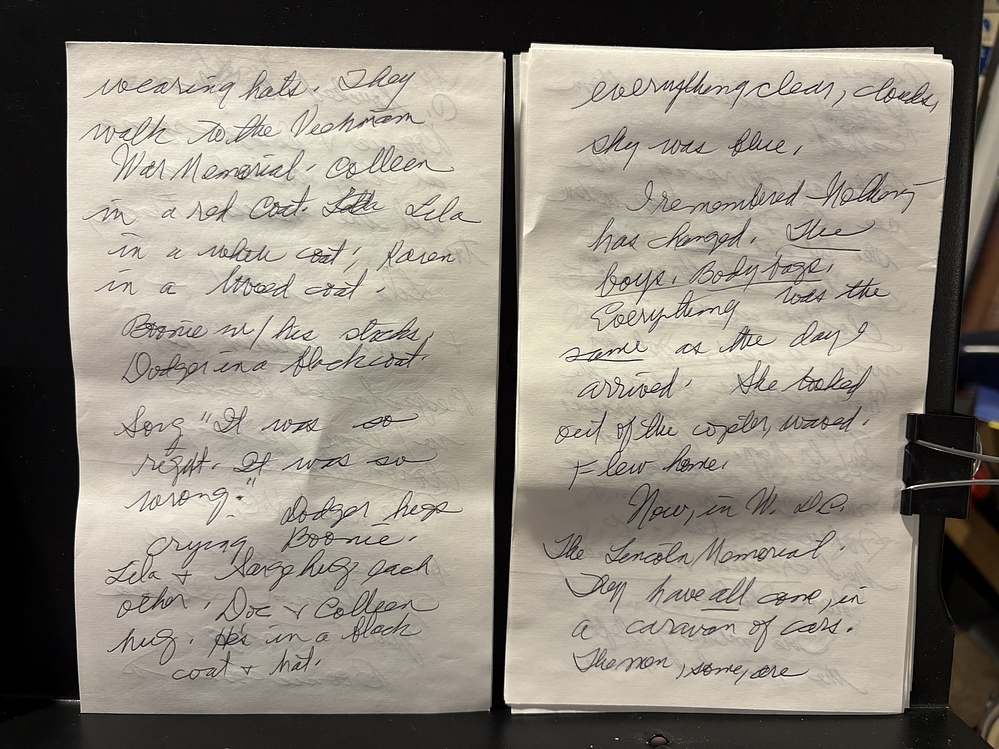 wearing hats. They
walk to the Veitnam
War Memorial. Colleen
in a red coat. Lila
in a white coat; Karen
in a coat.
Boonie w/ his stocks,
Dodger in a black coat.
Song "It was so
right. It was so
wrong."
Dodger hugs
crying Boonie.
Lila + Sarge hug each
other. Doc + Colleen
hug. He's in a black
coat + hat.
everything clear, clouds,
sky was blue.
I remembered Nothing
has changed. The
boys. Body bags.
Everything was the
same as the day I
arrived. She looked
out of the copter, waved.
Flew home.
Now, in W. DC.
The Lincoln Memorial.
They have all come, in
a caravan of cars.
The men, some, are